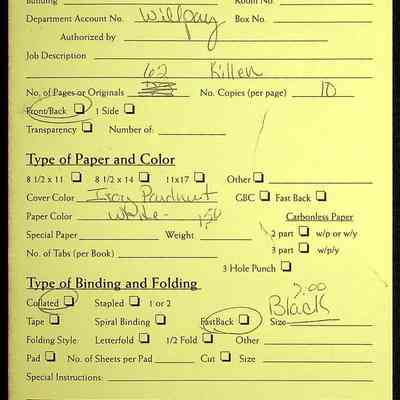 Building Room No.
Department Account No. Willpay Box No.
Authorized by
Job Description
62 Killen
No. of Pages or Originals No. Copies (per page) 10
Front/Back ❏ 1 Side ❏
Transparency ❏ Number of:
Type of Paper and Color
8 1/2 x 11 ❏ 8 1/2 x 14 ❏ 11x17 ❏ Other ❏
Cover Color GBC ❏ Fast Back ❏
Paper Color white - Carbonless Paper
Special Paper Weight 2 part ❏ w/p or w/y
No. of Tabs (per Book) 3 part ❏ w/p/y
3 Hole Punch ❏
Type of Binding and Folding
Collated ❏ Stapled ❏ 1 or 2
Tape ❏ Spiral Binding ❏ FastBack ❏ Size Black
Folding Style: Letterfold ❏ 1/2 Fold ❏ Other
Pad ❏ No. of Sheets per Pad Cut ❏ Size
Special Instructions: